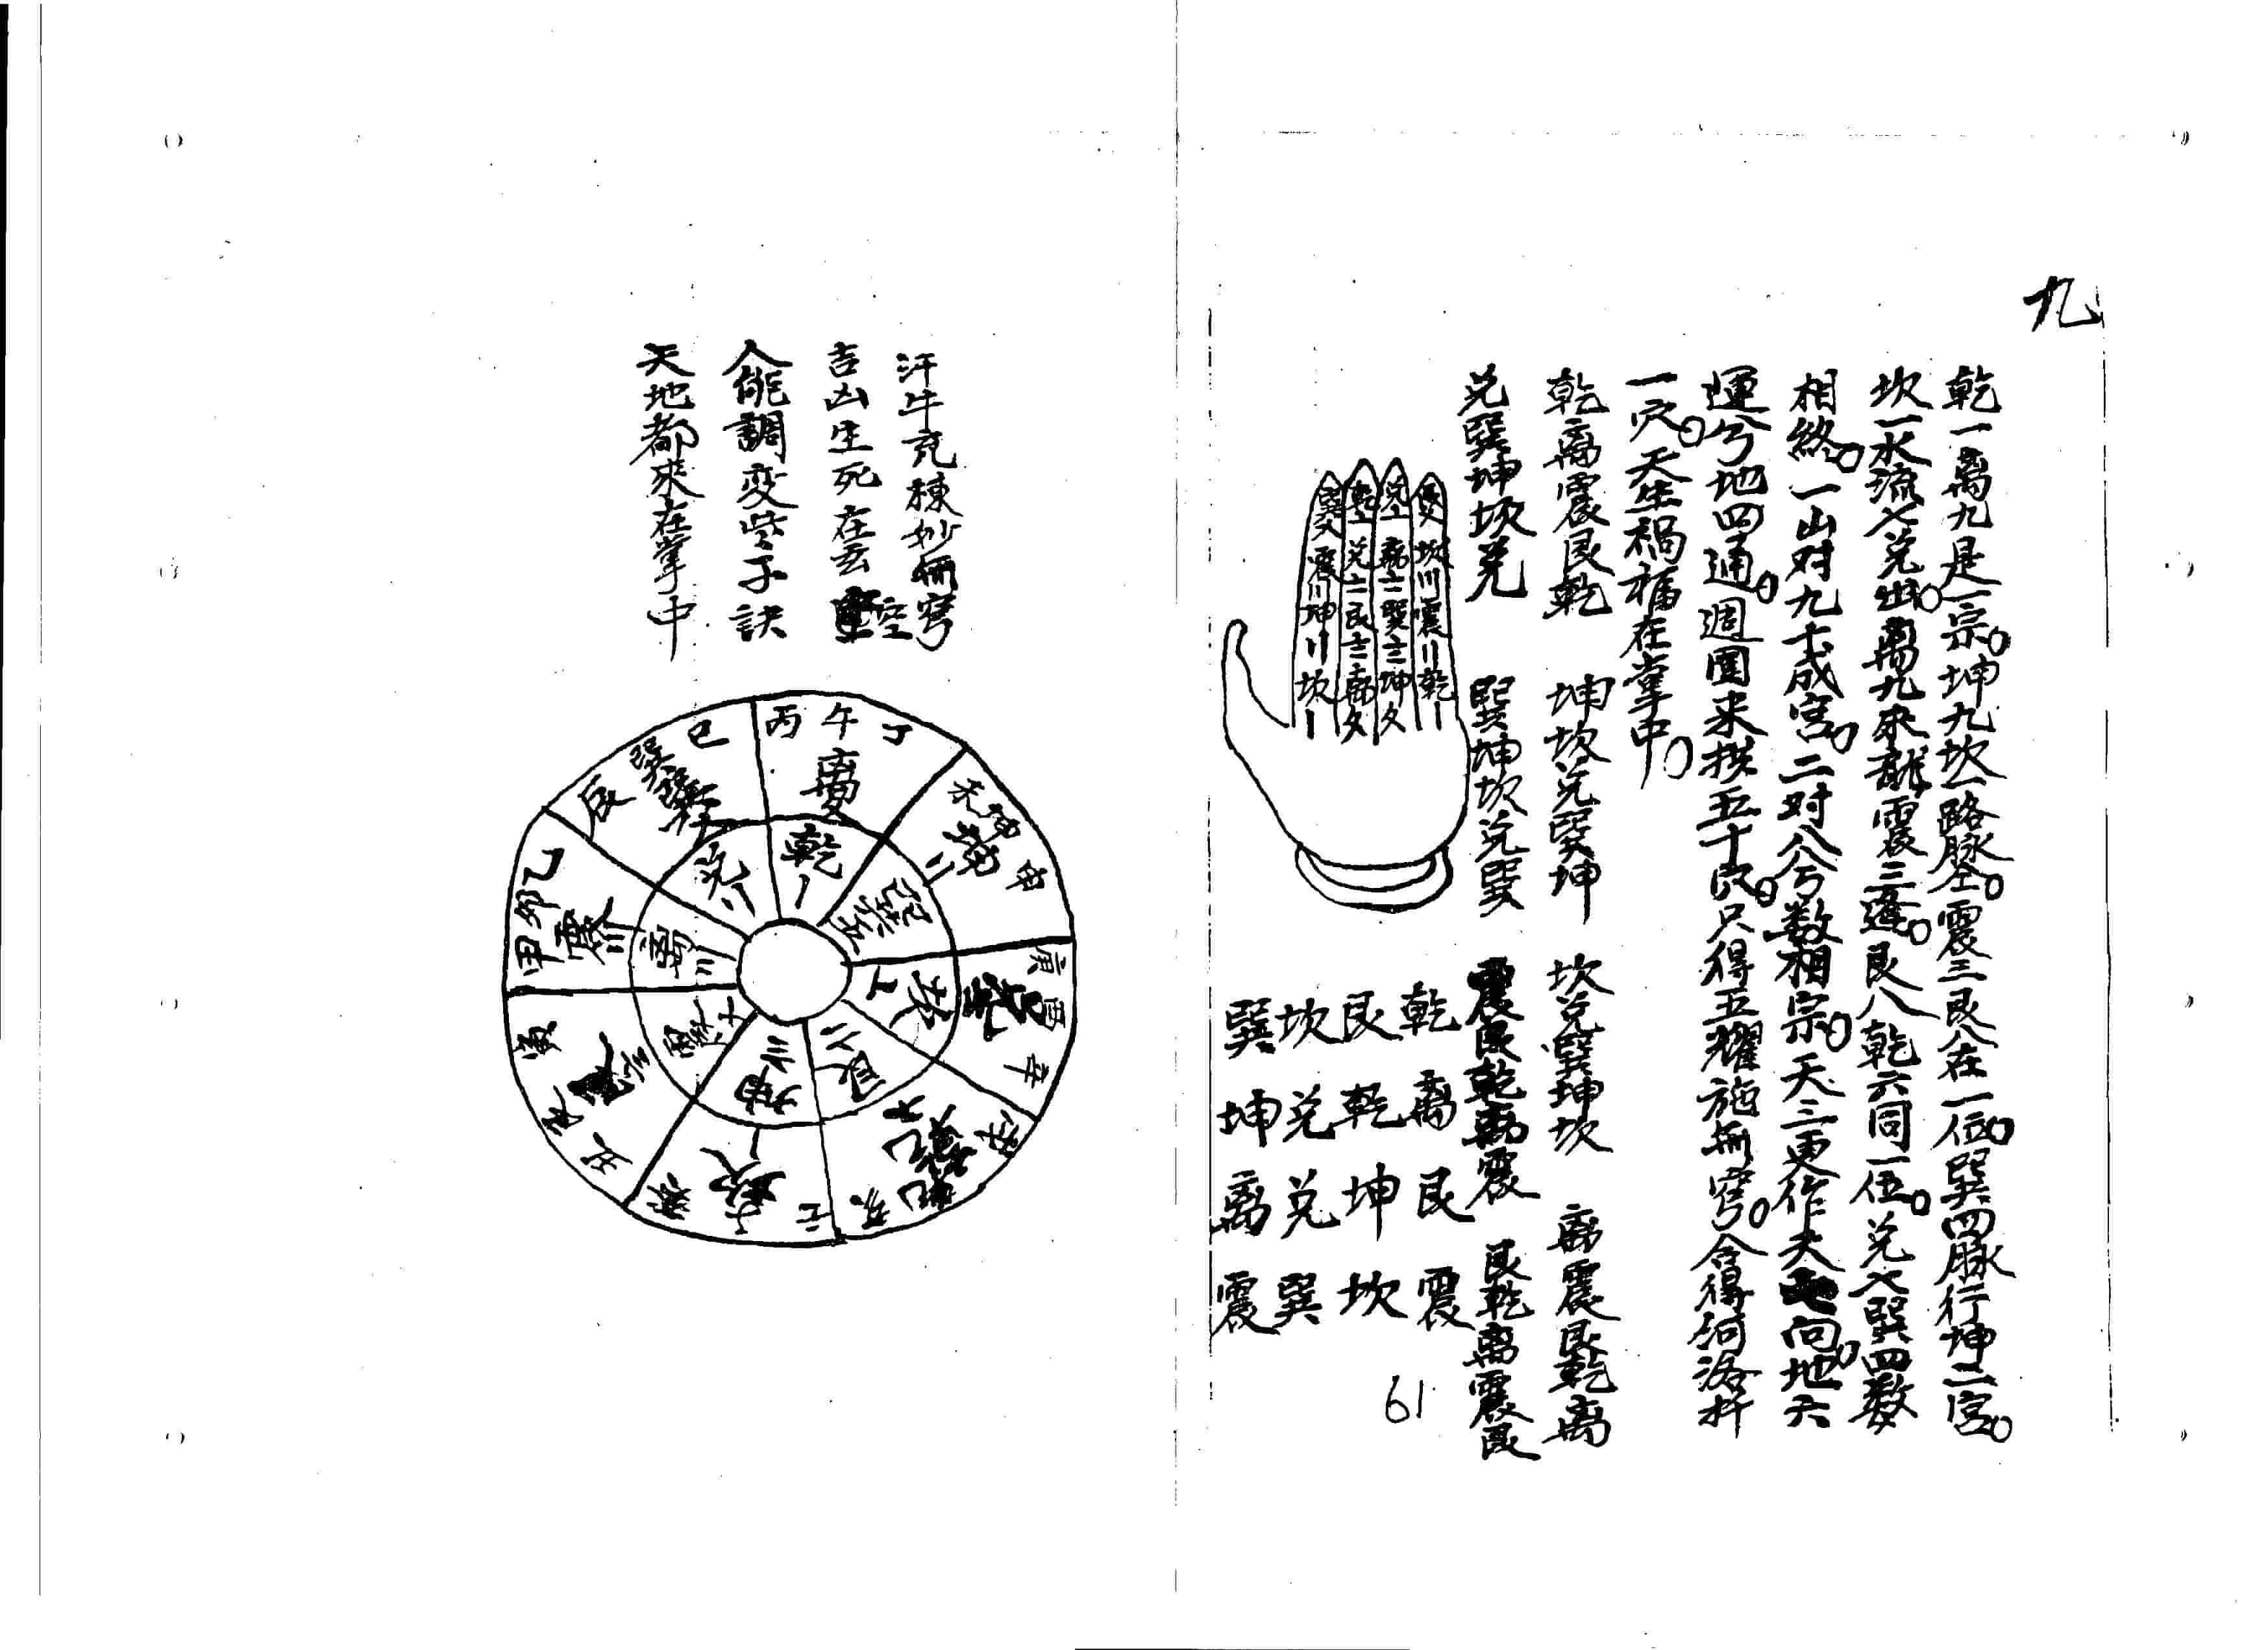 九
乾一离九是一宗。坤九坎一路脉全。震三艮八在一伍。巽四脉行坤二宮。
坎一水流七兑出。离九來龍震三逢。艮八乾六同一伍。兑七巽四数
相終。一山对九十成宮。二对八兮数相宗。天三更作夫向。地六
運兮地四通。週圍来拱五十良。只得五耀施無窮。合得河洛
一穴。天生禍福在掌中。
乾离震艮乾 坤坎兑巽坤 坎兑巽坤坎 离震艮乾离
兑巽坤坎兑 巽坤坎兑巽 震艮乾离震 艮乾离震艮
乾离艮震
艮乾坤坎
坎兑兑巽
巽坤离震
艮 坎川震川乾一
兑 离士二巽士三坤夂
乾 兑士二艮士三离夂
巽 震川坤川坎一
61
汗牛充棟妙無窮
吉凶生死在玄空
人能調変些子訣
天地都來在掌中
丙午丁
离
未坤申
坤二
庚酉辛
戌乾亥
壬
坎一
乙卯甲
震川
巳巽辰
乾一
巽五
坎
艮
坤三
离川
兑二